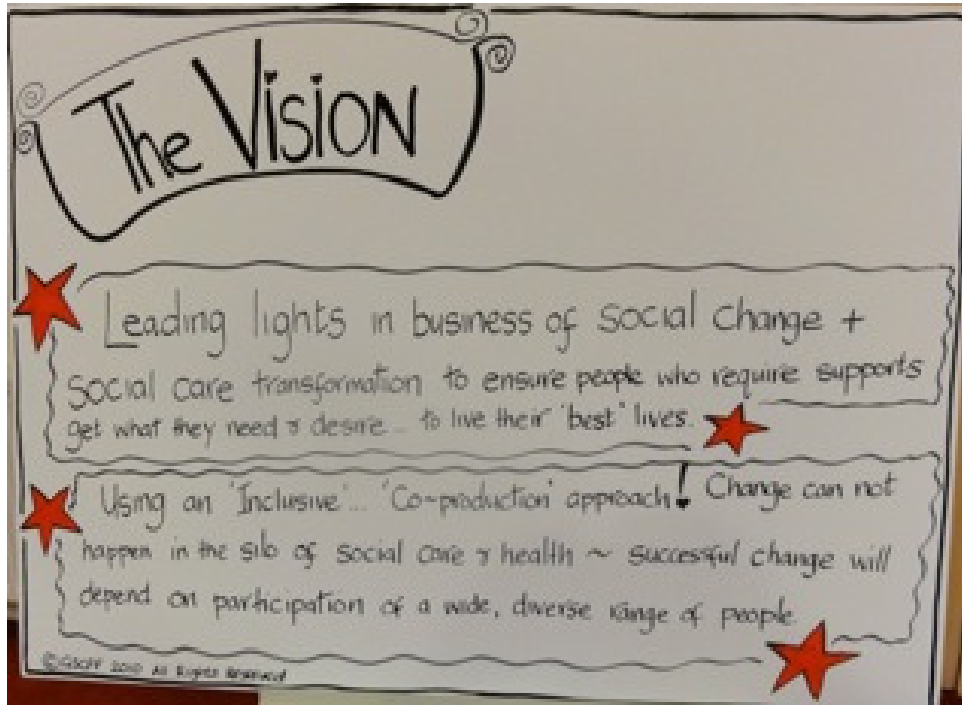 The Vision
Leading lights in business of social change +
social care transformation to ensure people who require supports
get what they need & desire... to live their 'best' lives.
Using an 'Inclusive'... 'Co-production' approach! Change can not
happen in the silo of social care & health ~ successful change will
depend on participation of a wide, diverse range of people
© 2010 All Rights Reserved